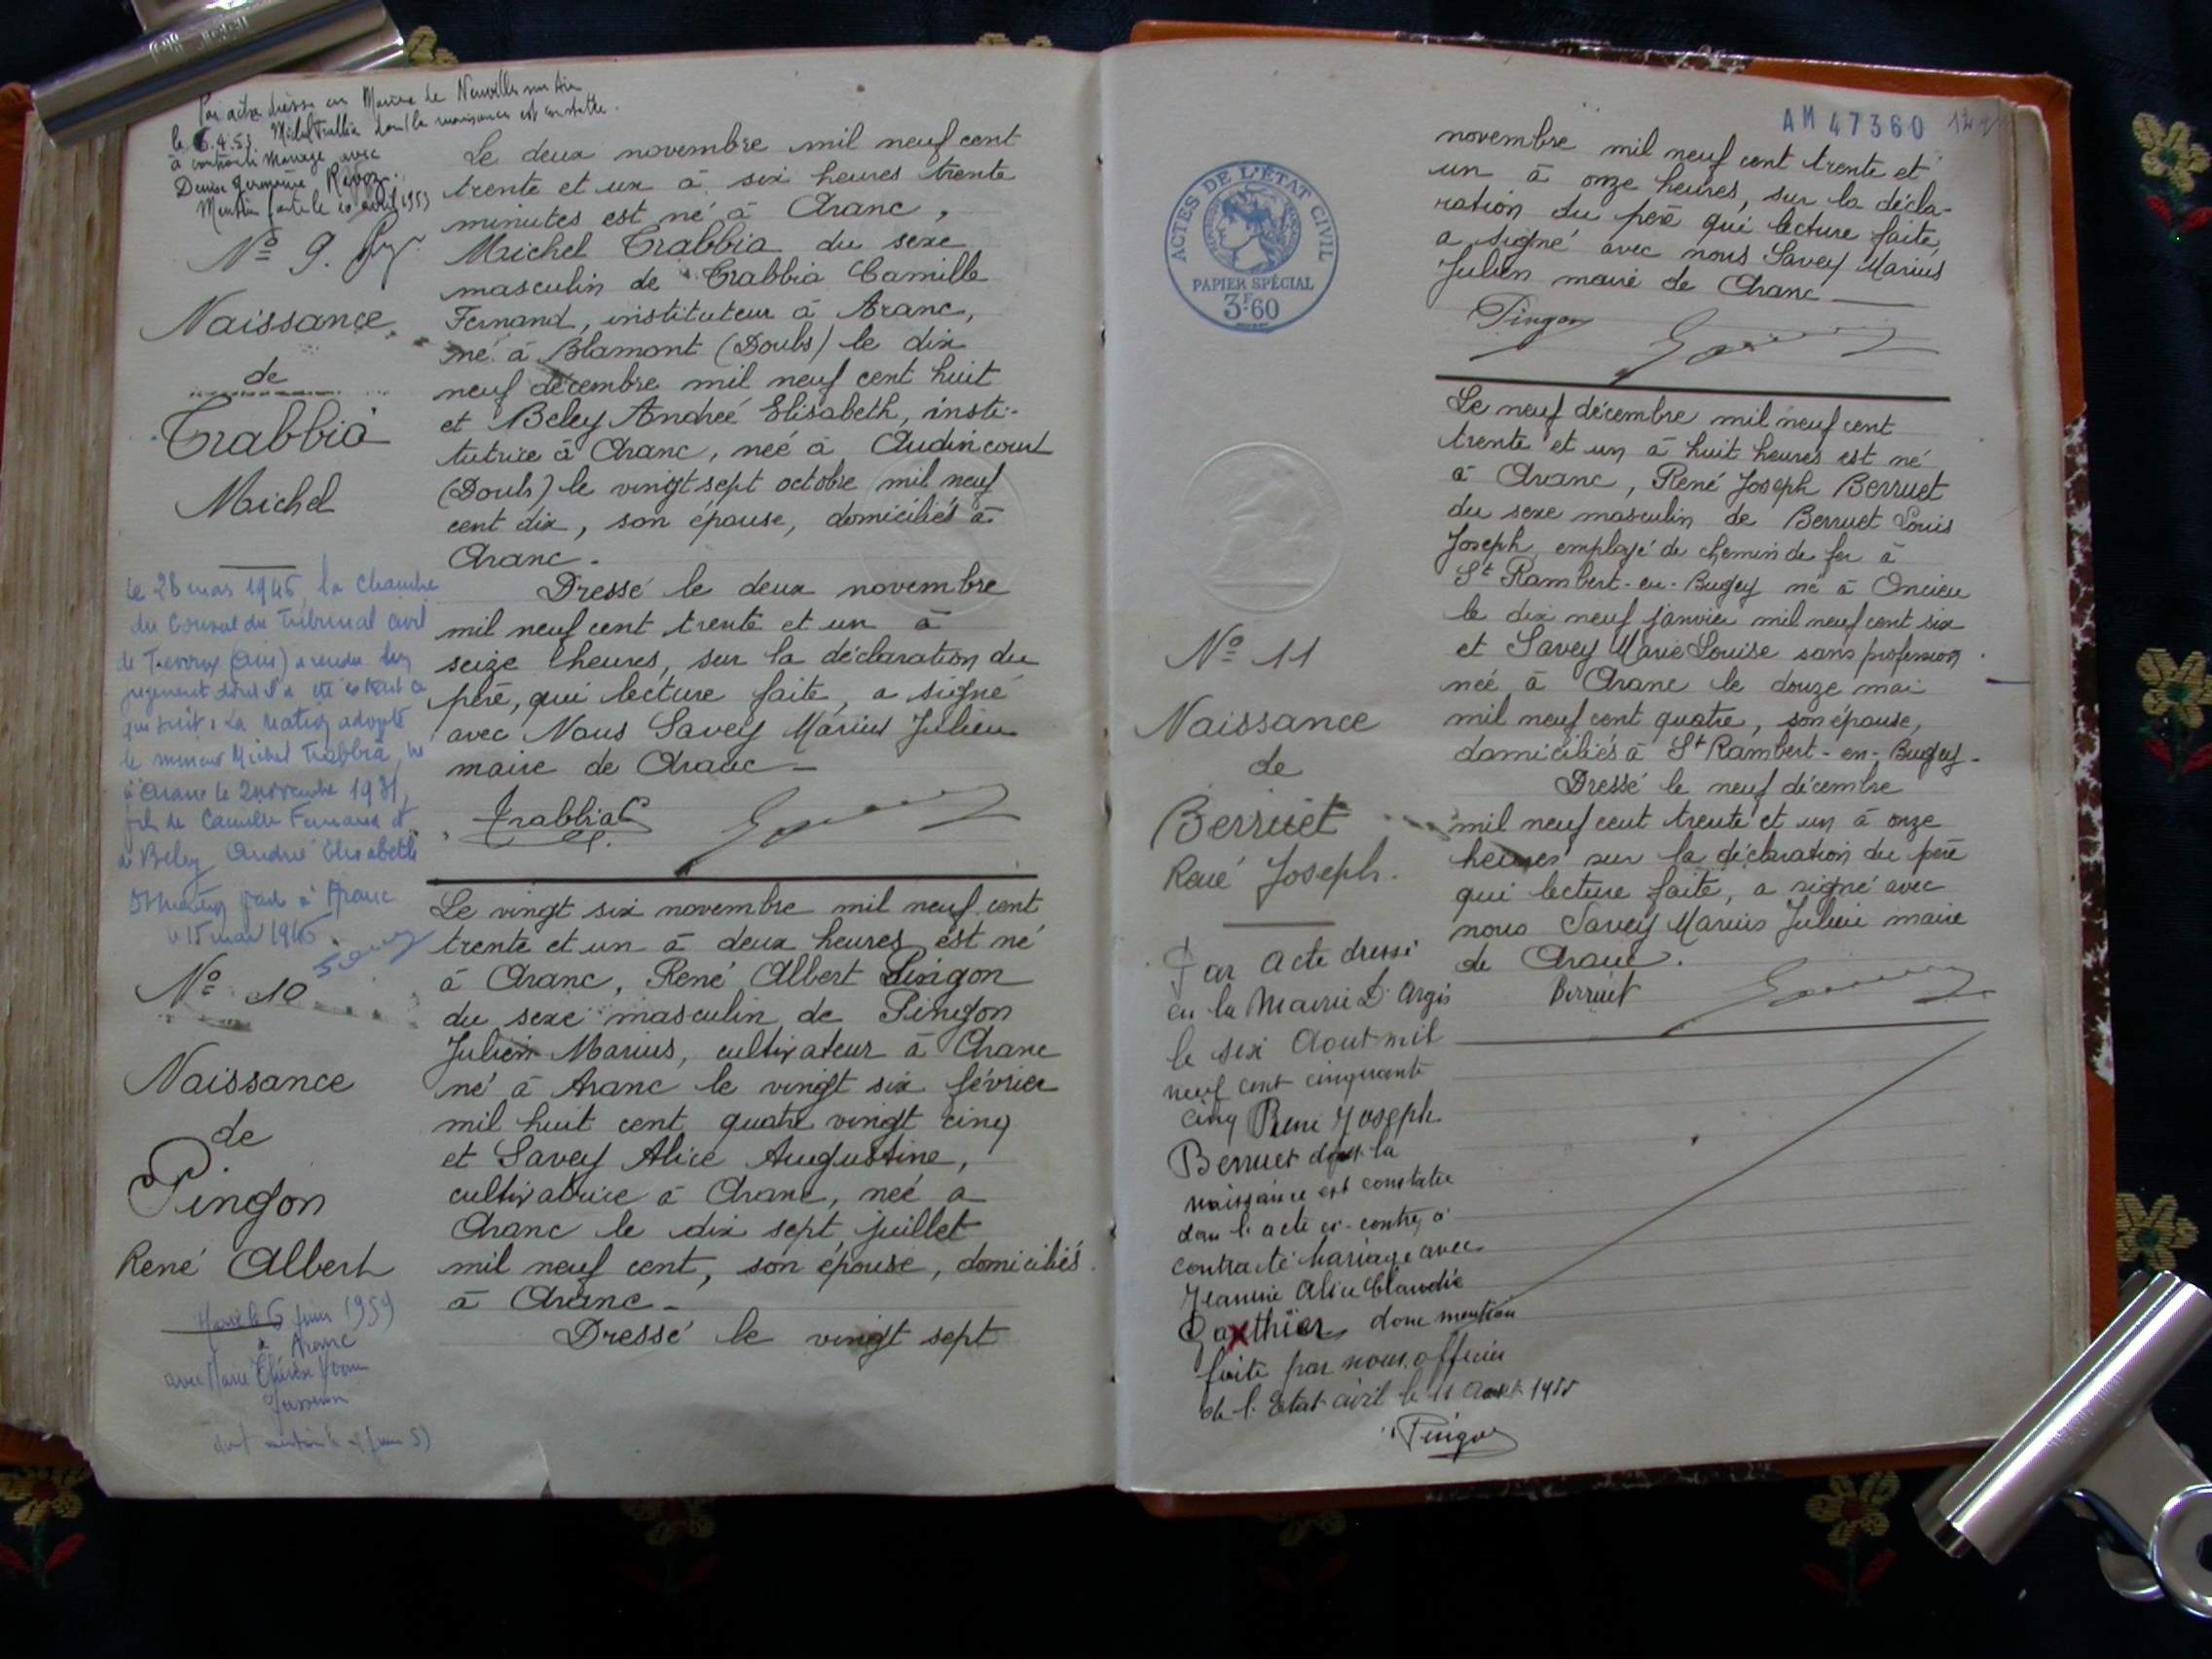 Par acte dressé en Mairie de Neuville sur Ain
le 6.4.53 Michel Trabbia dont la naissance est constatée
a contracté mariage avec
Denise Germaine
Mention faite le 10 avril 1953
N° 9.
Naissance
de
Trabbia
Michel
Le deux novembre mil neuf cent
trente et un à six heures trente
minutes est né à Aranc,
Michel Trabbia du sexe
masculin de Trabbia Camille
Fernand, instituteur à Aranc,
né à Blamont (Doubs) le dix
neuf décembre mil neuf cent huit
et Beley Andreé Elisabeth, insti-
tutrice à Aranc, neé à Audincourt
(Doubs) le vingt sept octobre mil neuf
cent dix, son épouse, domiciliés à
Aranc.
Dressé le deux novembre
mil neuf cent trente et un à
seize heures, sur la déclaration du
père, qui lecture faite, a signé
avec Nous Savey Marius Julien
maire de Aranc
Trabbia C
le 28 mars 1946, la Chambre
du Conseil du Tribunal civil
de Trevoux (Ain) a rendu un
jugement dont il a été extrait ce
qui suit : La Nation adopte
le mineur Michel Trabbia, né
à Aranc le 2 novembre 1931,
fils de Camille Fernand et
de Beley Andreé Elisabeth
à Aranc
15 mai 1946
N° 10
Naissance
de
Pingon
René Albert
Marié le 6 juin 1959
à Aranc
avec Marie Thérèse
Le vingt six novembre mil neuf cent
trente et un à deux heures est né
à Aranc, René Albert Pingon
du sexe masculin de Pingon
Julien Marius, cultivateur à Aranc
né à Aranc le vingt six février
mil huit cent quatre vingt cinq
et Savey Alice Augustine,
cultivatrice à Aranc, neé a
Aranc le dix sept juillet
mil neuf cent, son épouse, domiciliés
à Aranc.
Dressé le vingt sept
AM 47360
ACTES DE L'ÉTAT CIVIL
PAPIER SPÉCIAL
3F60
novembre mil neuf cent trente et
un à onze heures, sur la décla-
ration du père qui lecture faite,
a signé avec nous Savey Marius
Julien maire de Aranc
Pingon
N° 11
Naissance
de
Berruet
René Joseph.
Le neuf décembre mil neuf cent
trente et un à huit heures est né
à Aranc, René Joseph Berruet
du sexe masculin de Berruet Louis
Joseph employé de chemin de fer à
St Rambert-en-Bugey né à Oncieu
le dix neuf janvier mil neuf cent six
et Savey Marie Louise sans profession
neé à Aranc le douze mai
mil neuf cent quatre, son épouse,
domiciliés à St Rambert-en-Bugey.
Dressé le neuf décembre
mil neuf cent trente et un à onze
heures sur la déclaration du père
qui lecture faite, a signé avec
nous Savey Marius Julien maire
de Aranc.
Berruet
Par acte dressé
en la Mairie D'Argis
le six Aout mil
neuf cent cinquante
cinq René Joseph
Berruet dont la
naissance est constatée
dans l'acte ci-contre, a
contracté mariage avec
Jeanine Alice Claudie
Gauthier, dont mention
faite par nous officier
de l'Etat civil le 11 Aout 1955
Pingon